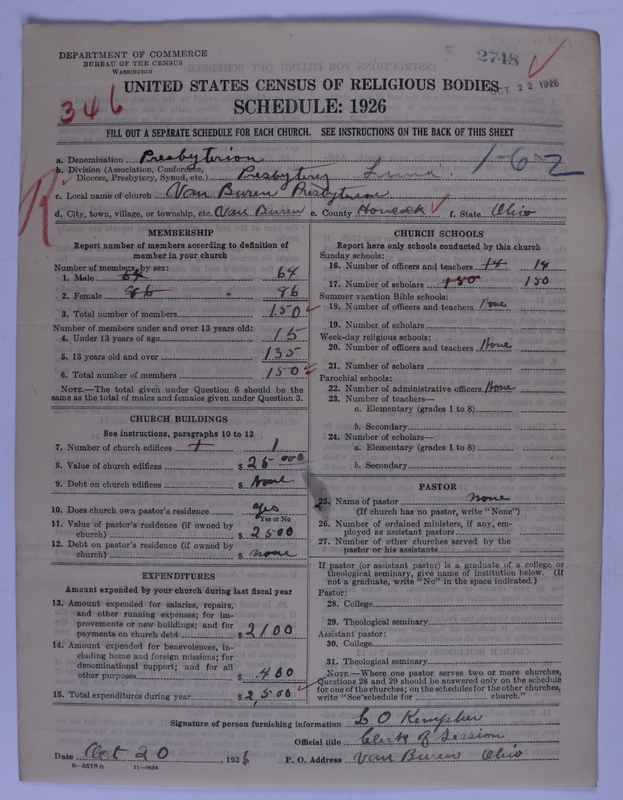 DEPARTMENT OF COMMERCE
BUREAU OF THE CENSUS
WASHINGTON
2748
OCT 22 1926
UNITED STATES CENSUS OF RELIGIOUS BODIES
346
SCHEDULE: 1926
FILL OUT A SEPARATE SCHEDULE FOR EACH CHURCH. SEE INSTRUCTIONS ON THE BACK OF THIS SHEET
a. Denomination Presbyterian
1-6-2
b. Division (Association, Conference, Diocese, Presbytery, Synod, etc.) Presbytery Lima
c. Local name of church Van Buren Presbyterian
d. City, town, village, or township, etc. Van Buren e. County Hancock f. State Ohio
MEMBERSHIP
Report number of members according to definition of member in your church
Number of members by sex:
1. Male 64 64
2. Female 86 86
3. Total number of members 150
Number of members under and over 13 years old:
4. Under 13 years of age 15
5. 13 years old and over 135
6. Total number of members 150
NOTE.—The total given under Question 6 should be the same as the total of males and females given under Question 3.
CHURCH BUILDINGS
See instructions, paragraphs 10 to 12
7. Number of church edifices 1 1
8. Value of church edifices $ 25000
9. Debt on church edifices $ None
10. Does church own pastor's residence yes
Yes or No
11. Value of pastor's residence (if owned by church) $ 2500
12. Debt on pastor's residence (if owned by church) $ none
EXPENDITURES
Amount expended by your church during last fiscal year
13. Amount expended for salaries, repairs, and other running expenses; for improvements or new buildings; and for payments on church debt $ 2100
14. Amount expended for benevolences, including home and foreign missions; for denominational support; and for all other purposes $ 400
15. Total expenditures during year $ 2,500
CHURCH SCHOOLS
Report here only schools conducted by this church
Sunday schools:
16. Number of officers and teachers 14 14
17. Number of scholars 150 150
Summer vacation Bible schools:
18. Number of officers and teachers None
19. Number of scholars
Week-day religious schools:
20. Number of officers and teachers None
21. Number of scholars
Parochial schools:
22. Number of administrative officers None
23. Number of teachers—
a. Elementary (grades 1 to 8)
b. Secondary
24. Number of scholars—
a. Elementary (grades 1 to 8)
b. Secondary
PASTOR
25. Name of pastor none
(If church has no pastor, write "None")
26. Number of ordained ministers, if any, employed as assistant pastors
27. Number of other churches served by the pastor or his assistants
If pastor (or assistant pastor) is a graduate of a college or theological seminary, give name of institution below. (If not a graduate, write "No" in the space indicated.)
Pastor:
28. College
29. Theological seminary
Assistant pastor:
30. College
31. Theological seminary
NOTE.—Where one pastor serves two or more churches, Questions 28 and 29 should be answered only on the schedule for one of the churches; on the schedules for the other churches, write "See schedule for church."
Signature of person furnishing information L O
Official title Clerk of Session
Date Oct 20 1926 P. O. Address Van Buren Ohio
8-5518a 11-9034